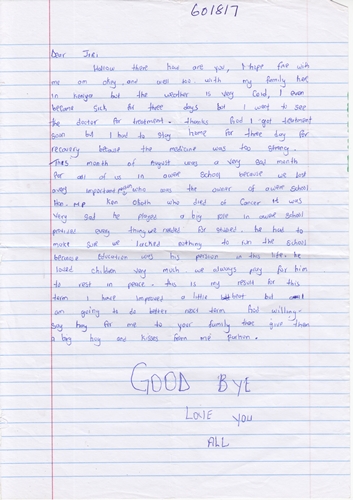 601817
Dear Jori
Hallow there how are you, I hope fine with
me am okay and well too. with my family here
in Kenya but the weather is very cold, I even
became sick for three days but I went to see
the doctor for treatment. thanks God I got treatment
soon but I had to stay home for three day for
recovery because the medicine was too strong.
This month of August was a very sad month
for all of us in ower School because we lost
a very important person who was the owner of ower School
Hon. MP Ken Okoth who died of Cancer it was
very sad he played a big role in ower school
every thing we needed for studies. he had to
make sure we lacked nothing to run the School
because Education was his passion in this life. he
loved children very much we always pray for him
to rest in peace. this is my result for this
term I have improved a little but I
am going to do better next term God willing.
Say bay for me to your family give them
a big hug and kisses from me
GOOD BYE
LOVE YOU
ALL